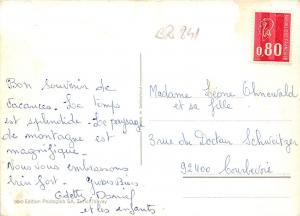 CR 841
0.80
Bon souvenir de
vacances. Le temps
est splendide. Le paysage
de montagne est
magnifique.
Nous vous embrassons
très fort.
Odette Daniel
et les enfants.
Madame Leone Ohnewald
et sa fille
3 rue du Docteur Schweitzer
92400 Courbevoie